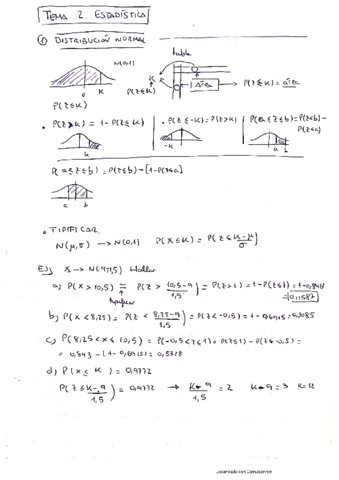 TEMA 2. ESTADÍSTICA
① DISTRIBUCIÓN NORMAL
N(0,1)
tabla
0 K
K
P(Z≤K)
ÁREA
P(Z≤K) = área
P(Z≤K)
• P(Z>K) = 1-P(Z≤K)
K
• P(Z≤-K) = P(Z>K)
-K
P(a≤Z≤b) = P(Z<b) - P(Z<a)
a b
P(a≤Z≤b) = P(Z≤b) - [1-P(Z≤a)]
a b
• TIPIFICAR
N(μ,σ) → N(0,1) P(X≤K) = P(Z≤ K-μ/σ)
EJ) X → N(9;1,5) Hallar
a) P(X>10,5) = P(Z > 10,5-9/1,5) = P(Z>1) = 1-P(Z≤1) = 1-0,8413
tipificar
= 0,1587
b) P(X<8,25) = P(Z < 8,25-9/1,5) = P(Z<-0,5) = 1-0,6915 = 0,3085
c) P(8,25<X≤10,5) = P(-0,5<Z≤1) = P(Z≤1) - P(Z≤-0,5) =
= 0,843 - (1-0,6915) = 0,5328
d) P(X≤K) = 0,9772
P(Z≤ K-9/1,5) = 0,9772 → K-9/1,5 = 2 K-9=3 K=12